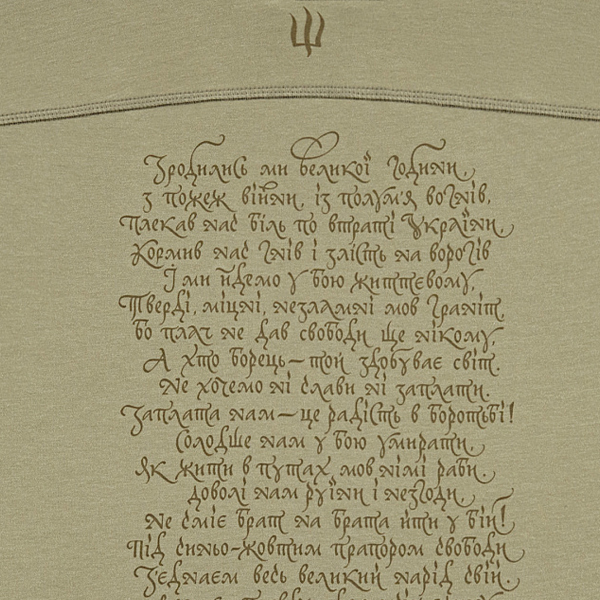 Зродились ми великої години,
з пожеж війни, із полум'я вогнів,
Плекав нас біль по втраті України,
Кормив нас гнів і злість на ворогів
І ми йдемо у бою життєвому,
Тверді, міцні, незламні мов граніт,
бо плач не дав свободи ще нікому,
А хто борець – той здобуває світ.
Не хочемо ні слави ні заплати.
Заплата нам – це радість в боротьбі!
Солодше нам у бою умирати,
Як жити в путах, мов німі раби.
доволі нам руїни і незгоди,
Не сміє брат на брата йти у бій!
Під синьо-жовтим прапором свободи
З'єднаєм весь великий нарід свій.